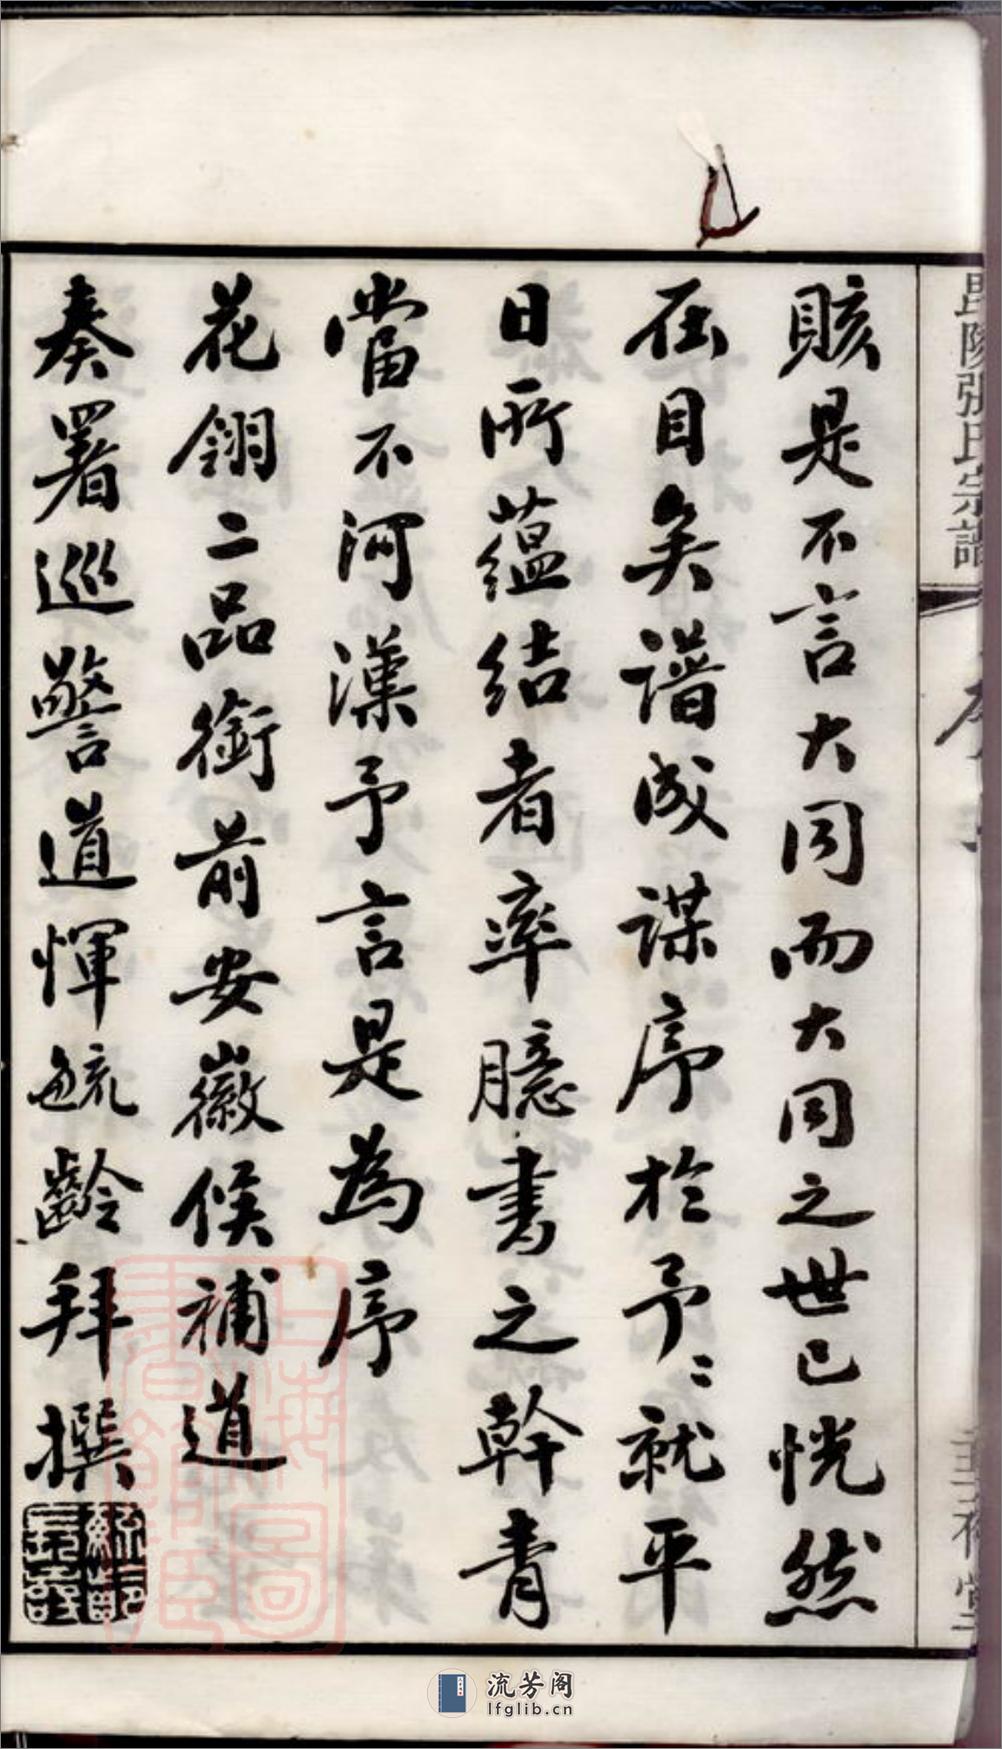 毘陵張氏宗譜
賅是不言大同而大同之世已恍然
在目矣譜成謀序於予〻就平
日所蘊結者率臆書之幹青
當不河漢予言是為序
花翎二品銜前安徽候補道
奏署巡警道惲毓齡拜撰
上海圖書館藏
流芳阁
lfglib.cn